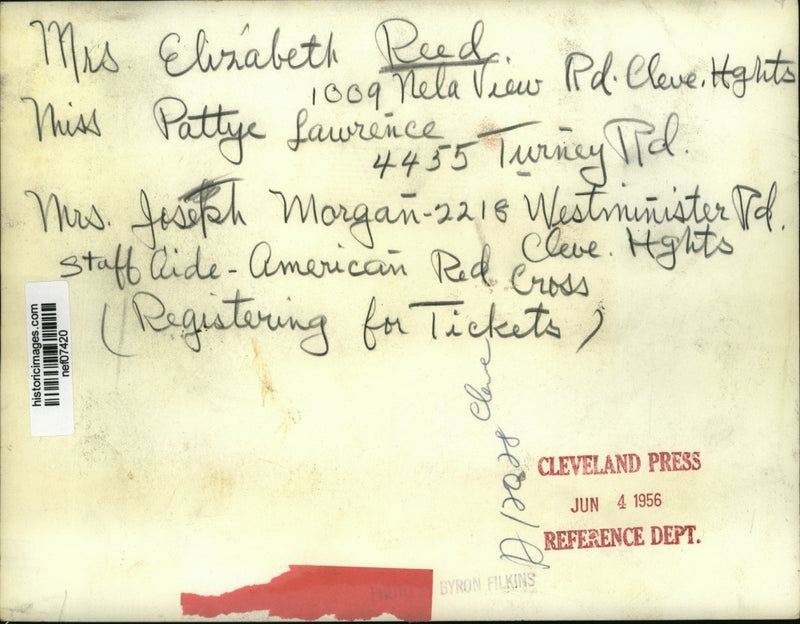 Mrs Elizabeth Reed
1009 Nela View Rd. Cleve. Hghts
Miss Pattye Lawrence
4455 Turney Rd.
Mrs. Joseph Morgan-2218 Westminister Rd.
Cleve. Hghts
Staff Aide-American Red Cross
(Registering for Tickets)
historicimages.com
nef07420
Cleve
CLEVELAND PRESS
JUN 4 1956
REFERENCE DEPT.
PHOTO BYRON FILKINS